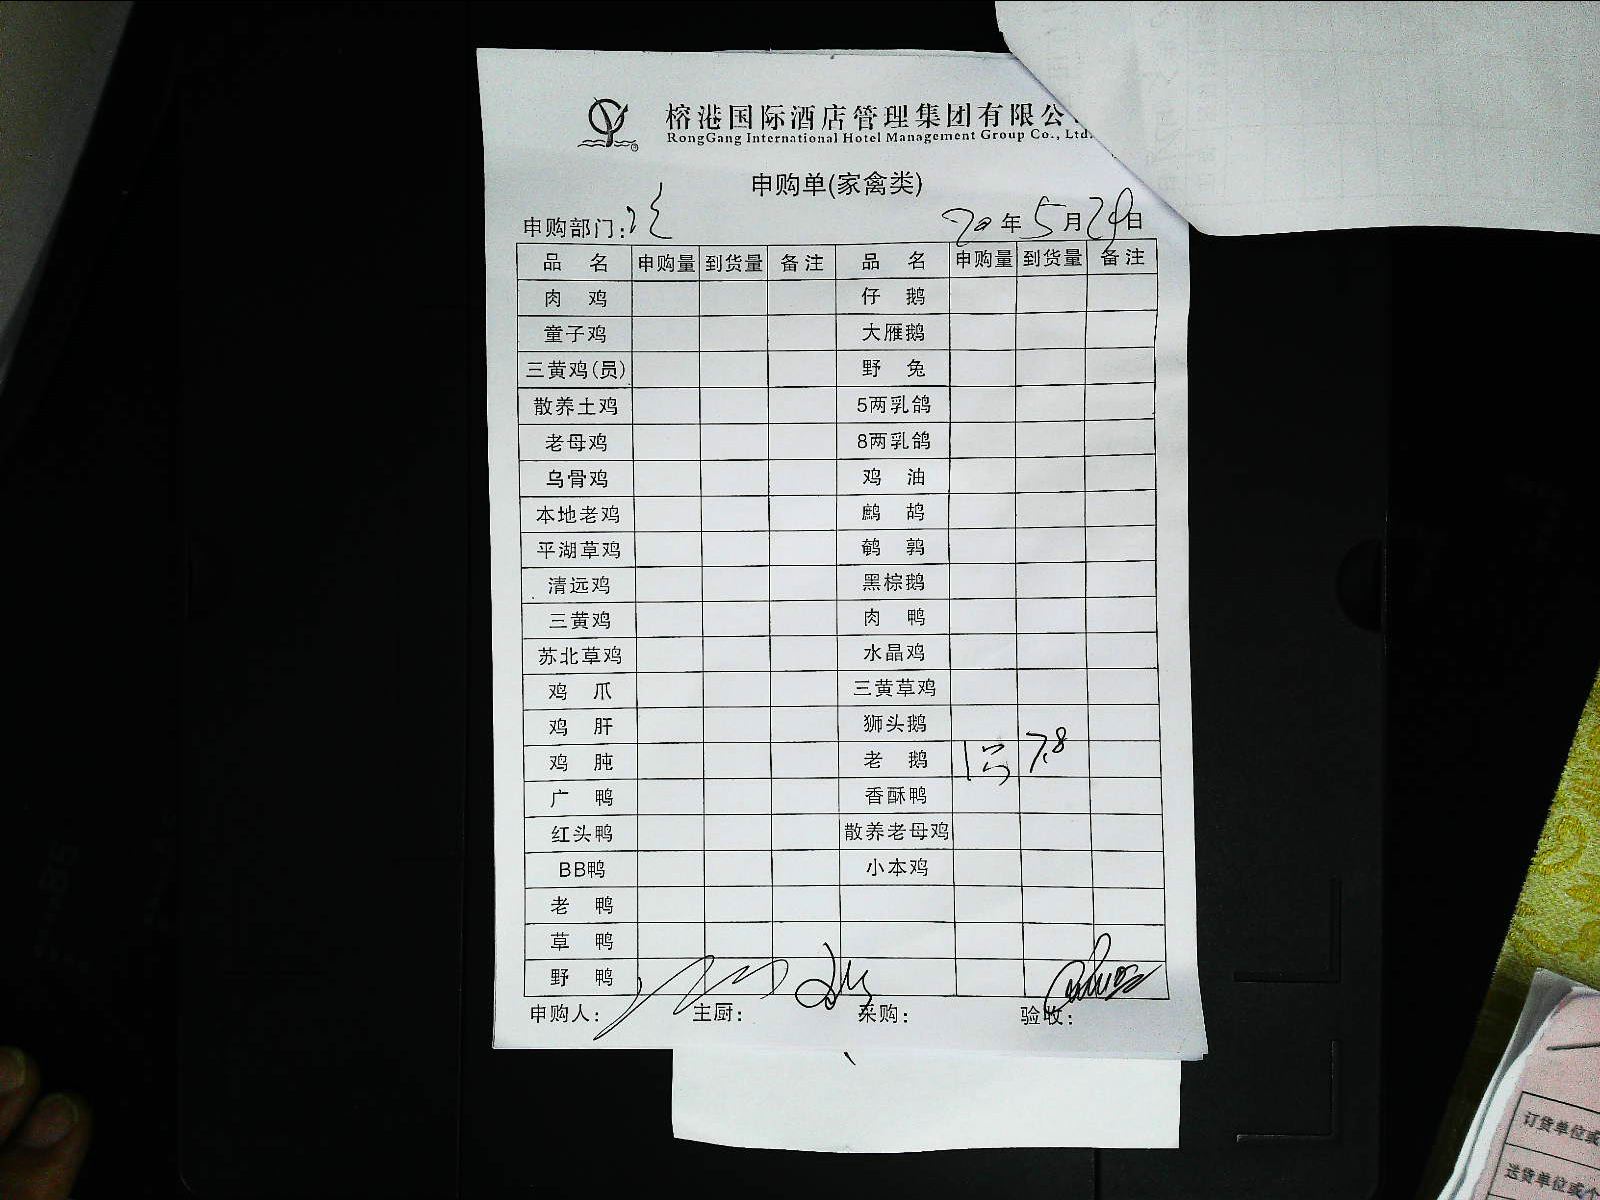 榕港国际酒店管理集团有限公
RongGang International Hotel Management Group Co., Ltd.
申购单(家禽类)
申购部门: 20年5月29日
品名 申购量 到货量 备注 品名 申购量 到货量 备注
肉鸡 仔鹅
童子鸡 大雁鹅
三黄鸡(员) 野兔
散养土鸡 5两乳鸽
老母鸡 8两乳鸽
乌骨鸡 鸡油
本地老鸡 鹧鸪
平湖草鸡 鹌鹑
清远鸡 黑棕鹅
三黄鸡 肉鸭
苏北草鸡 水晶鸡
鸡爪 三黄草鸡
鸡肝 狮头鹅
鸡肫 老鹅 1只 7.8
广鸭 香酥鸭
红头鸭 散养老母鸡
BB鸭 小本鸡
老鸭
草鸭
野鸭
申购人: 主厨: 采购: 验收:
订货单位或
送货单位或个